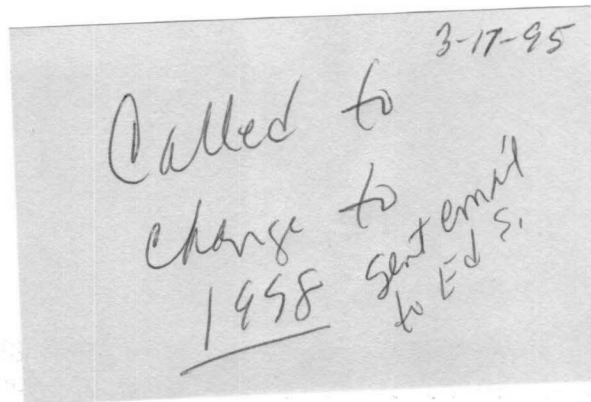 3-17-95
Called to
change to
1998
sent email
to Ed S.